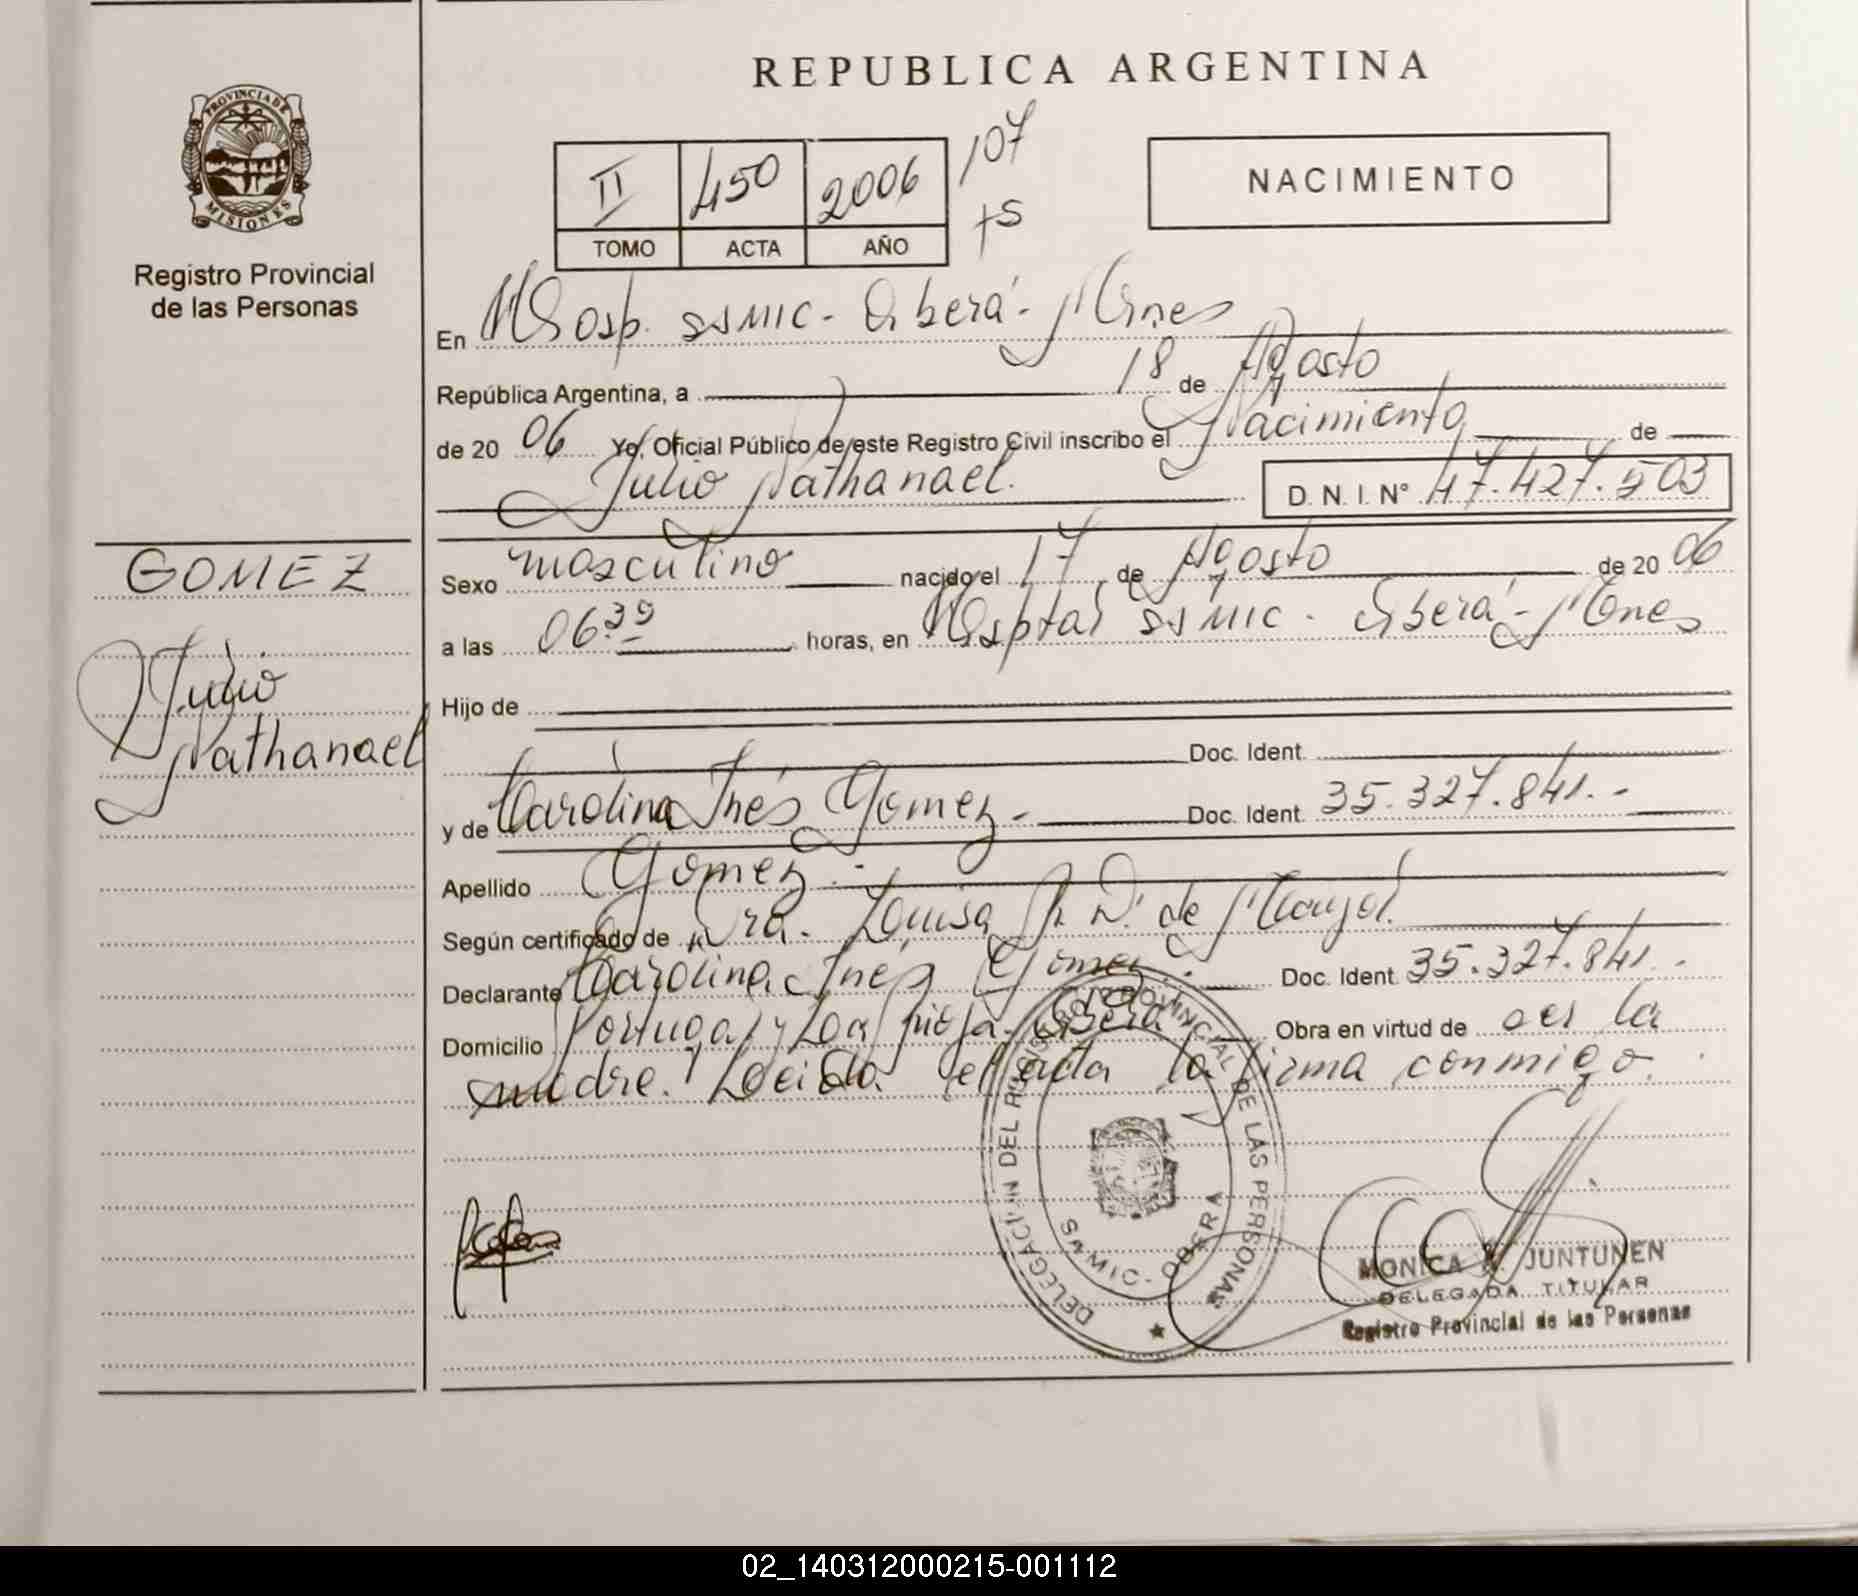 REPUBLICA ARGENTINA
PROVINCIA DE MISIONES
Registro Provincial
de las Personas
II 450 2006 /07
TOMO ACTA AÑO
NACIMIENTO
En Hosp. SAMIC - Oberá - Mnes
República Argentina, a 18 de Agosto
de 20 06 Yo, Oficial Público de este Registro Civil inscribo el Nacimiento de
Julio Nathanael.
D. N. I. N° 47.427.503
GOMEZ
Julio
Nathanael
Sexo masculino nacido el 17 de Agosto de 20 06
a las 06.39 horas, en Hospital SAMIC - Oberá - Mnes
Hijo de
Doc. Ident.
y de Carolina Inés Gomez - Doc. Ident. 35.327.841.-
Apellido Gomez.-
Según certificado de Dra. Louisa de
Declarante Carolina Inés Gomez.- Doc. Ident. 35.327.841.-
Domicilio Portugal y La Rioja - Oberá Obra en virtud de ser la
madre. Leída el acta la firma conmigo.
DELEGACION DEL REGISTRO PROVINCIAL DE LAS PERSONAS
SAMIC - OBERA
MONICA JUNTUNEN
DELEGADA TITULAR
Registro Provincial de las Personas
02_140312000215-001112